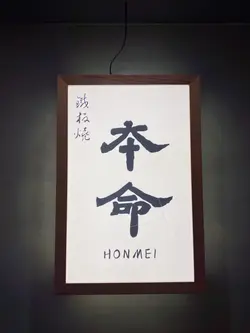 鐵板燒
本命
HONMEI